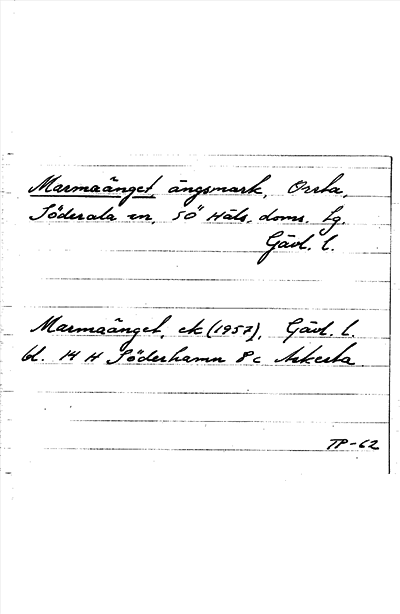 Marmaänget ängsmark, Orrsta,
Söderala sn, SÖ Häls. doms. lg.
Gävl. l.
Marmaänget, ek (1957), Gävl. l.
bl. 14 H Söderhamn 8 c Askesta
TP-62